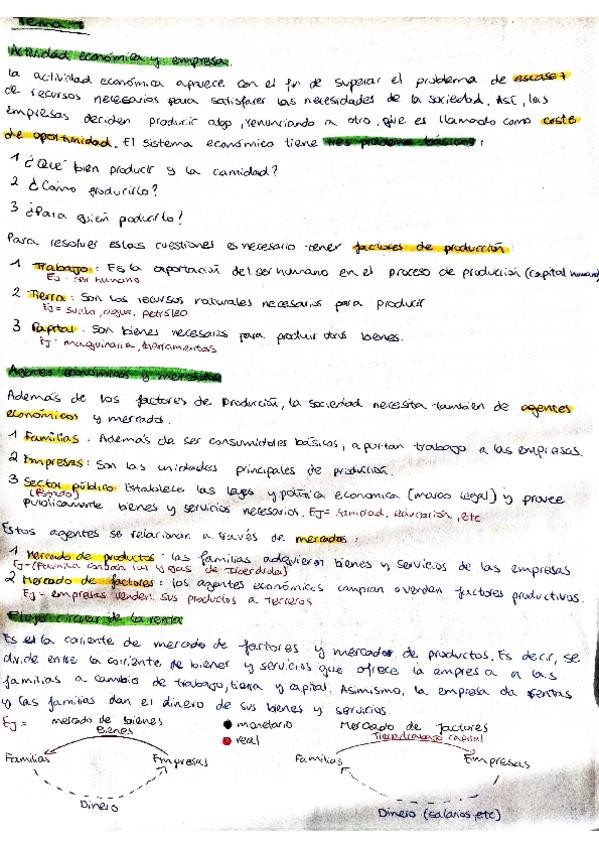 Tema 1
Actividad económica y empresa.
La actividad económica aparece con el fin de superar el problema de escasez
de recursos necesarios para satisfacer las necesidades de la sociedad. Así, las
empresas deciden producir algo, renunciando a otro, que es llamado como coste
de oportunidad. El sistema económico tiene tres problemas básicos:
1 ¿Qué bien producir y la cantidad?
2 ¿Cómo producirlo?
3 ¿Para quién producirlo?
Para resolver estas cuestiones es necesario tener factores de producción:
1 Trabajo: Es la aportación del ser humano en el proceso de producción (capital humano)
Ej - ser humano
2 Tierra: Son los recursos naturales necesarios para producir
Ej = suelo, agua, petróleo
3 Capital: Son bienes necesarios para producir otros bienes.
Ej - maquinaria, herramientas
Agentes económicos y mercados
Además de los factores de producción, la sociedad necesita también de agentes
económicos y mercados.
1 Familias: Además de ser consumidores básicos, aportan trabajo a las empresas.
2 Empresas: Son las unidades principales de producción.
3 Sector público Establece las leyes y política economica (marco legal) y provee
(Estado)
públicamente bienes y servicios necesarios. Ej= Sanidad, educación, etc
Estos agentes se relacionan a través de mercados:
1 Mercado de productos: las familias adquieren bienes y servicios de las empresas
Ej-(Familia compra luz y gas de Iberdrola)
2 Mercado de factores: los agentes económicos compran o venden factores productivos.
Ej - empresas venden sus productos a terceros
Flujo circular de la renta
Es es la coriente de mercado de factores y mercados de productos. Es decir, se
divide entre la corriente de bienes y servicios que ofrece la empresa a las
familias a cambio de trabajo, tierra y capital. Asimismo, la empresa da rentas
y las familias dan el dinero de sus bienes y servicios.
Ej = mercado de bienes
monetario
real
Mercado de factores
Bienes
Tierra, trabajo, capital
Familias
Empresas
Familias
Empresas
Dinero
Dinero (salarios, etc)